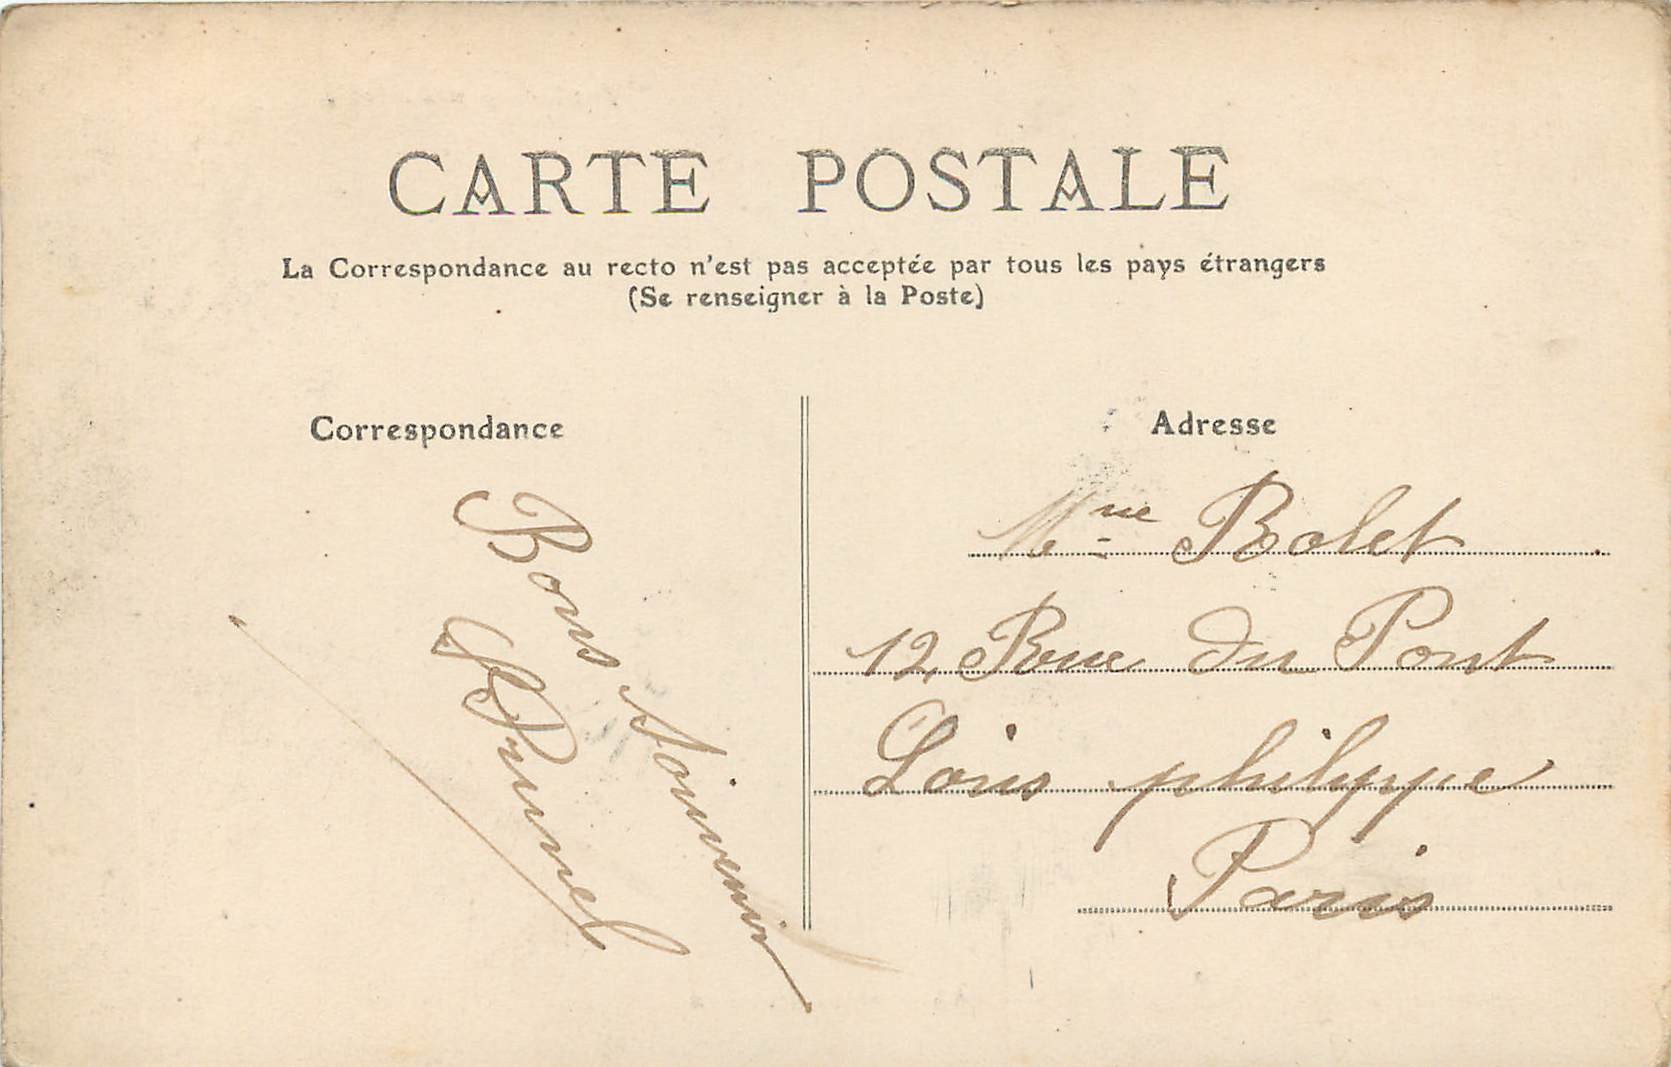 CARTE POSTALE
La Correspondance au recto n'est pas acceptée par tous les pays étrangers
(Se renseigner à la Poste)
Correspondance
Bons Soivenir
Brunel
Adresse
Mme Rolet
12 Rue du Pont
Louis philippe
Paris